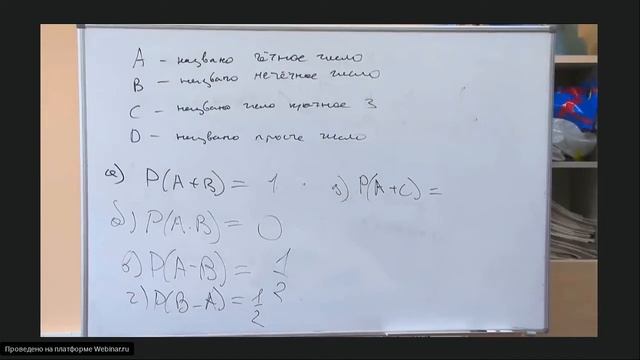 A – названо чётное число
B – названо нечётное число
C – названо число кратное 3
D – названо простое число
а) P(A+B) = 1
б) P(A·B) = 0
в) P(A–B) = 1/2
г) P(B–A) = 1/2
д) P(A+C) =
Проведено на платформе Webinar.ru